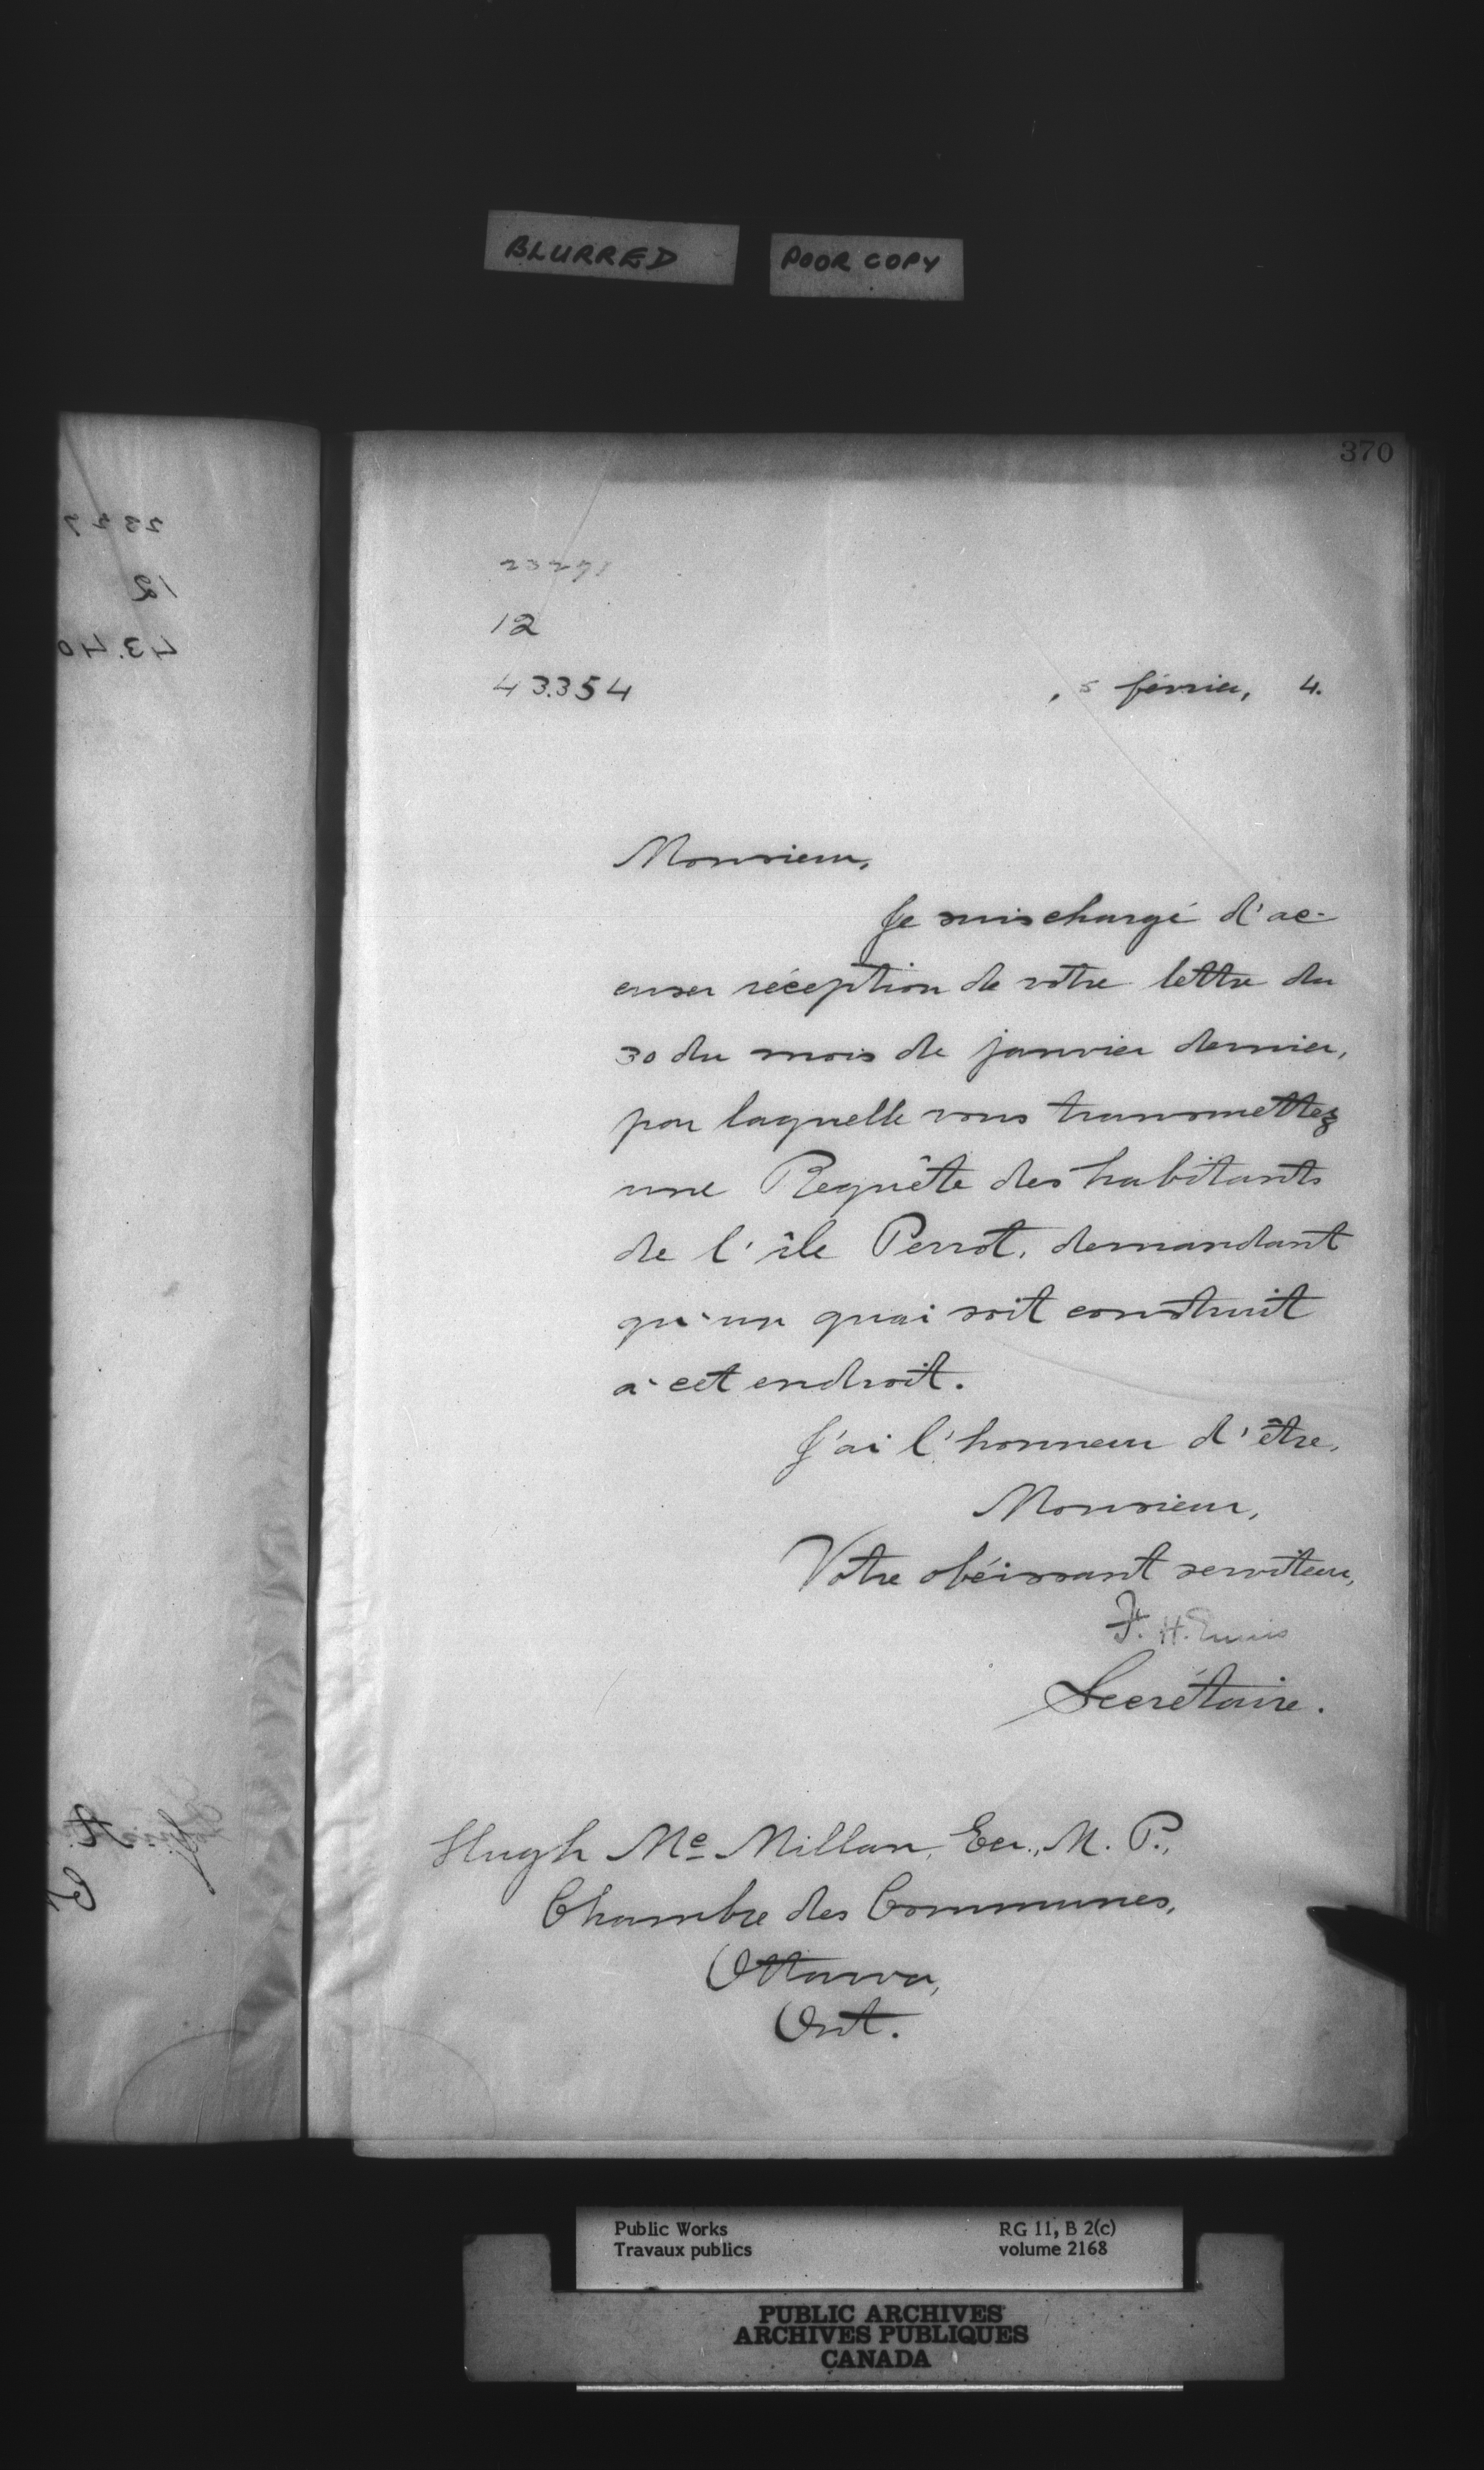 BLURRED
POOR COPY
370
12
43.354
, 5 février, 4.
Monsieur,
Je suis chargé d'ac-
cuser réception de votre lettre du
30 du mois de janvier dernier,
par laquelle vous transmettez
une Requête des habitants
de l'île Perrot, demandant
qu'un quai soit construit
à cet endroit.
J'ai l'honneur d'être,
Monsieur,
Votre obéissant serviteur,
F. H. Ennis
Secrétaire.
Hugh Mc Millan, Ecr., M. P.,
Chambre des Communes,
Ottawa,
Ont.
Public Works
Travaux publics
RG 11, B 2(c)
volume 2168
PUBLIC ARCHIVES
ARCHIVES PUBLIQUES
CANADA